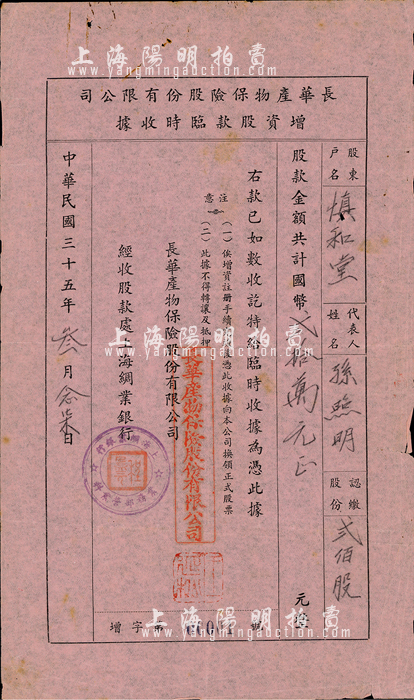 上海陽明拍賣
www.yangmingauction.com
長華產物保險股份有限公司
增資股款臨時收據
股東戶名 慎和堂 代表人姓名 孫煦明 認繳股份 貳佰股
股款金額共計國幣貳拾萬元正 元整
右款已如數收訖特給臨時收據為憑此據
注意
(一)俟增資註冊手續
憑此收據向本公司換領正式股票
(二)此據不得轉讓及抵押
長華產物保險股份有限公司
長華產物保險股份有限公司
經收股款處上海綢業銀行
中華民國三十五年叁月念柒日
增字第
號
上海陽明拍賣
www.yangmingauction.com
上海陽明拍賣
www.yangmingauction.com